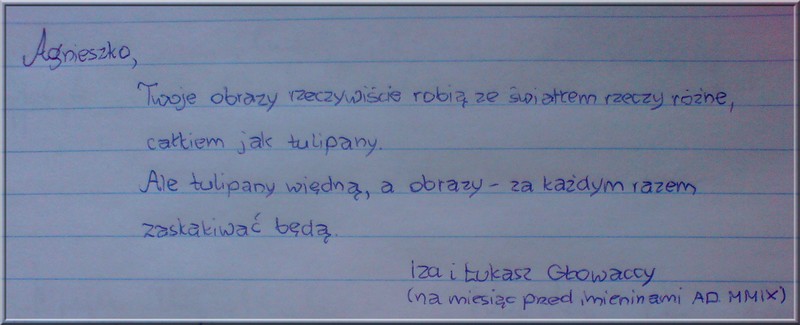 Agnieszko,
Twoje obrazy rzeczywiście robią ze światłem rzeczy różne,
całkiem jak tulipany.
Ale tulipany więdną, a obrazy - za każdym razem
zaskakiwać będą.
Iza i Łukasz Głowaccy
(na miesiąc przed imieninami AD. MMIX)